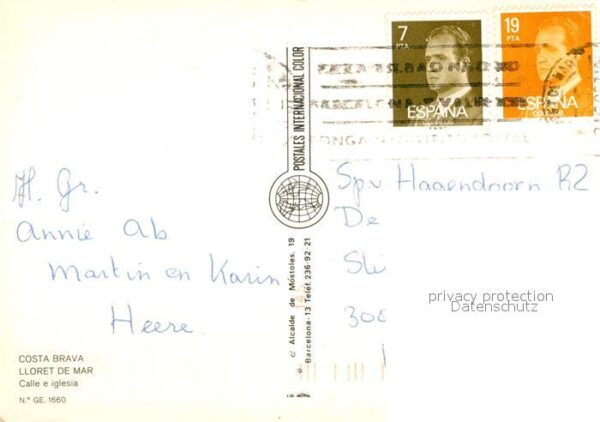 7
PTA
ESPAÑA
19
PTA
ESPAÑA
POSTALES INTERNACIONAL COLOR
c/ Alcalde de Móstoles, 19
Barcelona-13 Teléf. 236-92-21
H. Gr.
Annie Ab
Martin en Karin
Heere.
Spv Haaendoorn R2
De
308
privacy protection
Datenschutz
COSTA BRAVA
LLORET DE MAR
Calle e iglesia
N.º GE. 1660